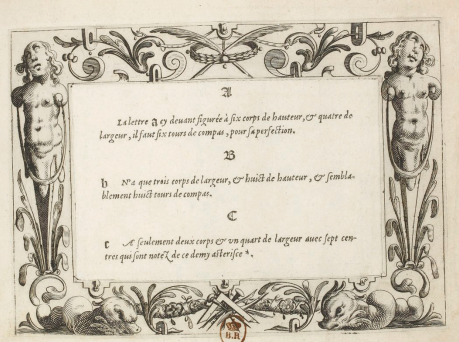 A
La lettre a cy devant figurée à six corps de hauteur, & quatre de
largeur, il faut six tours de compas, pour sa perfection.
B
b N'a que trois corps de largeur, & huict de hauteur, & sembla-
blement huict tours de compas.
C
c A seulement deux corps & vn quart de largeur avec sept cen-
tres qui sont notez de ce demy asterisce *.
B.R